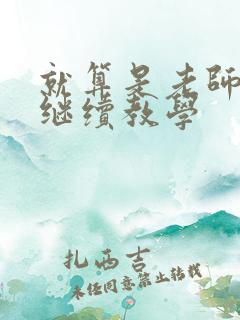 就算是老師
继續教學
扎西吉
未经同意禁止转载